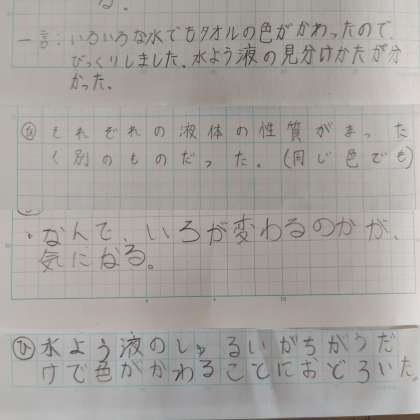 る。
一言：いろいろな水でもタオルの色がかわったので、
びっくりしました。水よう液の見分けかたが分
かった。
な それぞれの液体の性質がまった
く別のものだった。(同じ色でも)
・なんで、いろが変わるのかが、
気になる。
ひ 水よう液のしゅるいがちがうだ
けで色がかわることにおどろいた。